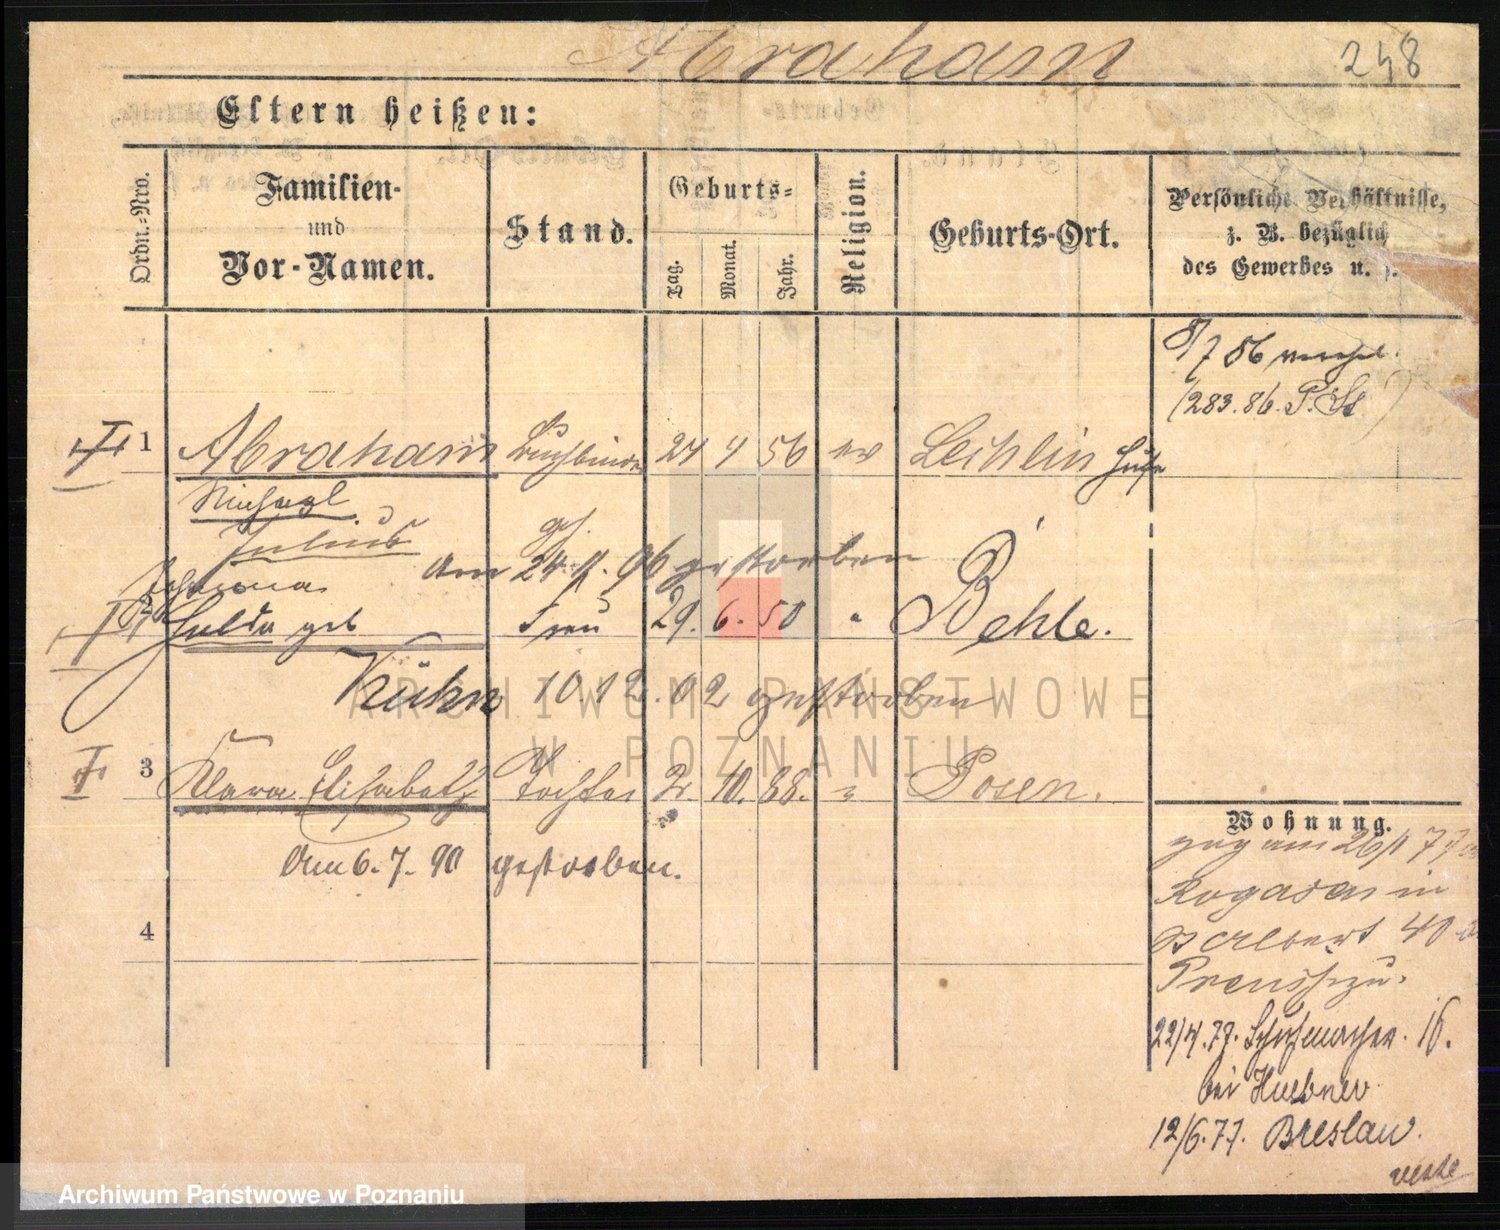 Abraham
248
Eltern heißen:
Ordn.-Nro.
Familien-
und
Vor-Namen.
Stand.
Geburts-
Tag.
Monat.
Jahr.
Religion.
Geburts-Ort.
Persönliche Verhältnisse,
z. B. bezüglich
des Gewerbes u. s.
8/7 86
(283.86. P. St)
1 Abraham Buchbinder 24 4 56 ev
Michael
Julius
gest.
Am 24. 96 gestorben
Johanna
Hulda geb Frau 29. 6. 50 " Behle.
Kühn 10 12. 02 gestorben
3 Klara Elisabeth Tochter 2. 10. 88. " Posen.
Am 6. 7. 90 gestorben.
4
Wohnung.
zog am 26/1 77
Rogasen in
Albert 40
22/4. 77. Schuhmacher. 16.
bei Huebner
12/6. 77. Breslau.
ARCHIWUM PAŃSTWOWE
W POZNANIU
Archiwum Państwowe w Poznaniu